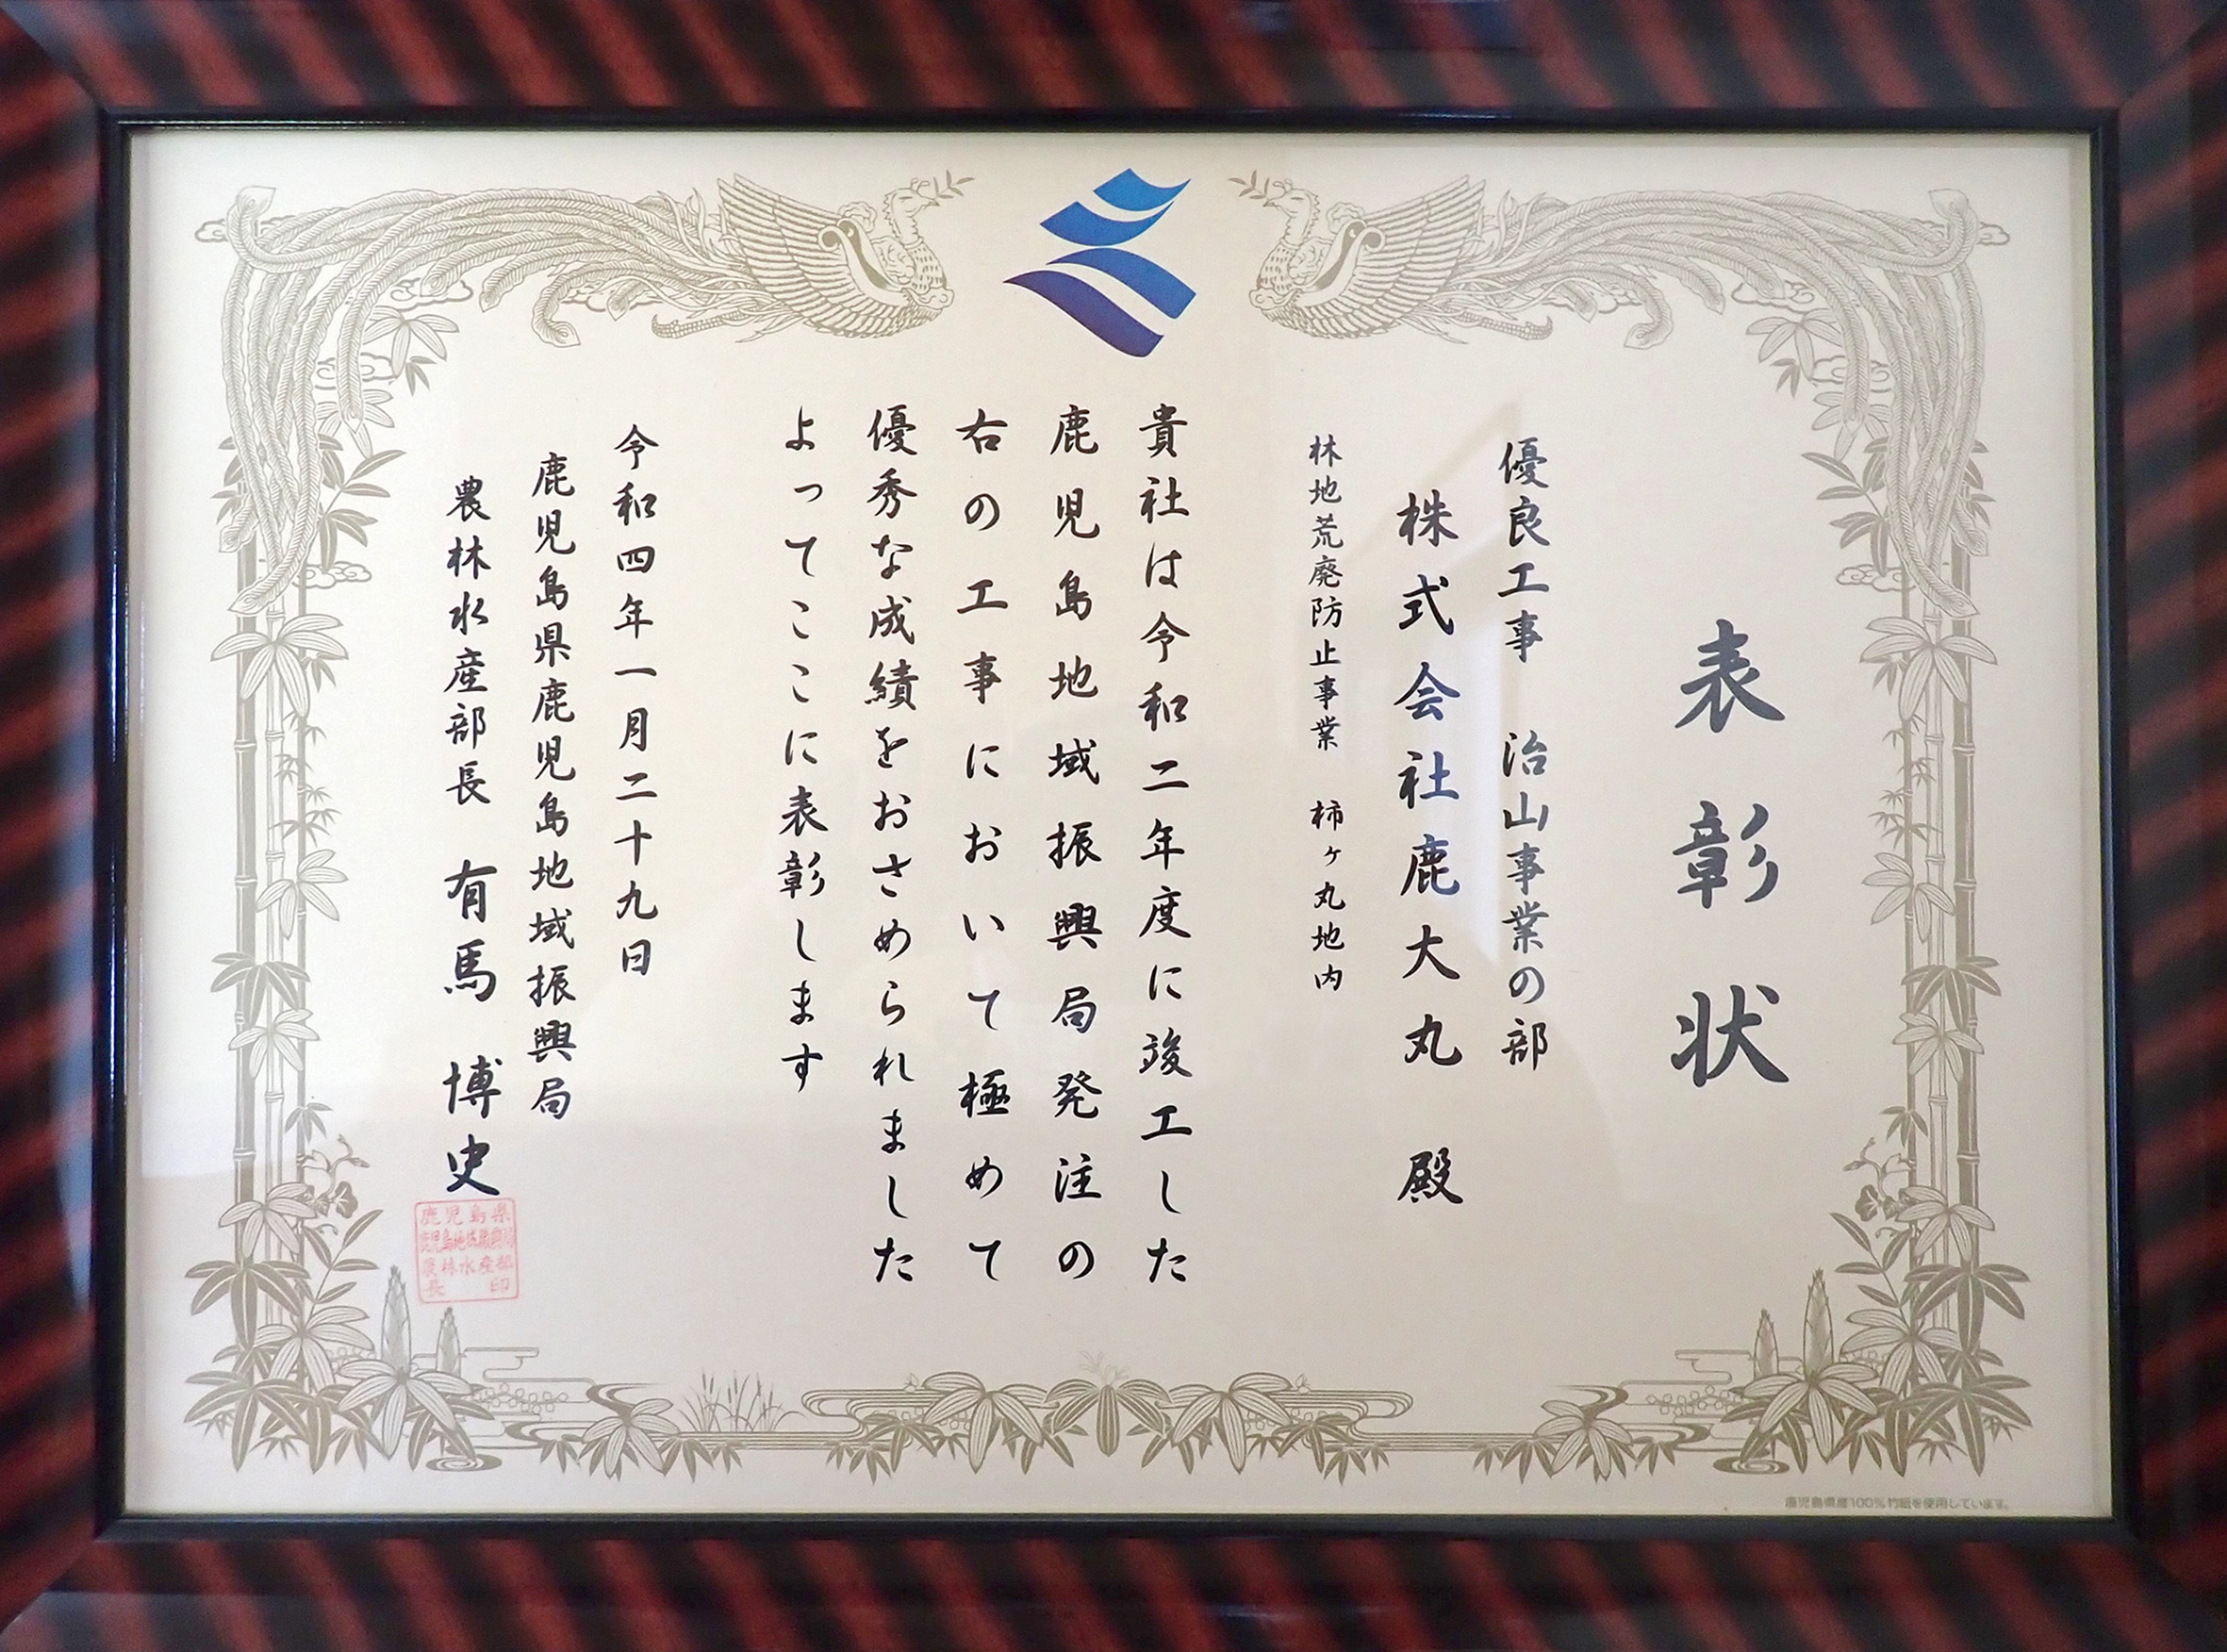 表彰状
優良工事　治山事業の部
株式会社鹿大丸　殿
林地荒廃防止事業　柿ヶ丸地内
貴社は令和二年度に竣工した
鹿児島地域振興局発注の
右の工事において極めて
優秀な成績をおさめられました
よってここに表彰します
令和四年一月二十九日
鹿児島県鹿児島地域振興局
農林水産部長　有馬　博史
鹿児島県
鹿児島地域振興局
農林水産部
長　印
鹿児島県産100%竹紙を使用しています。